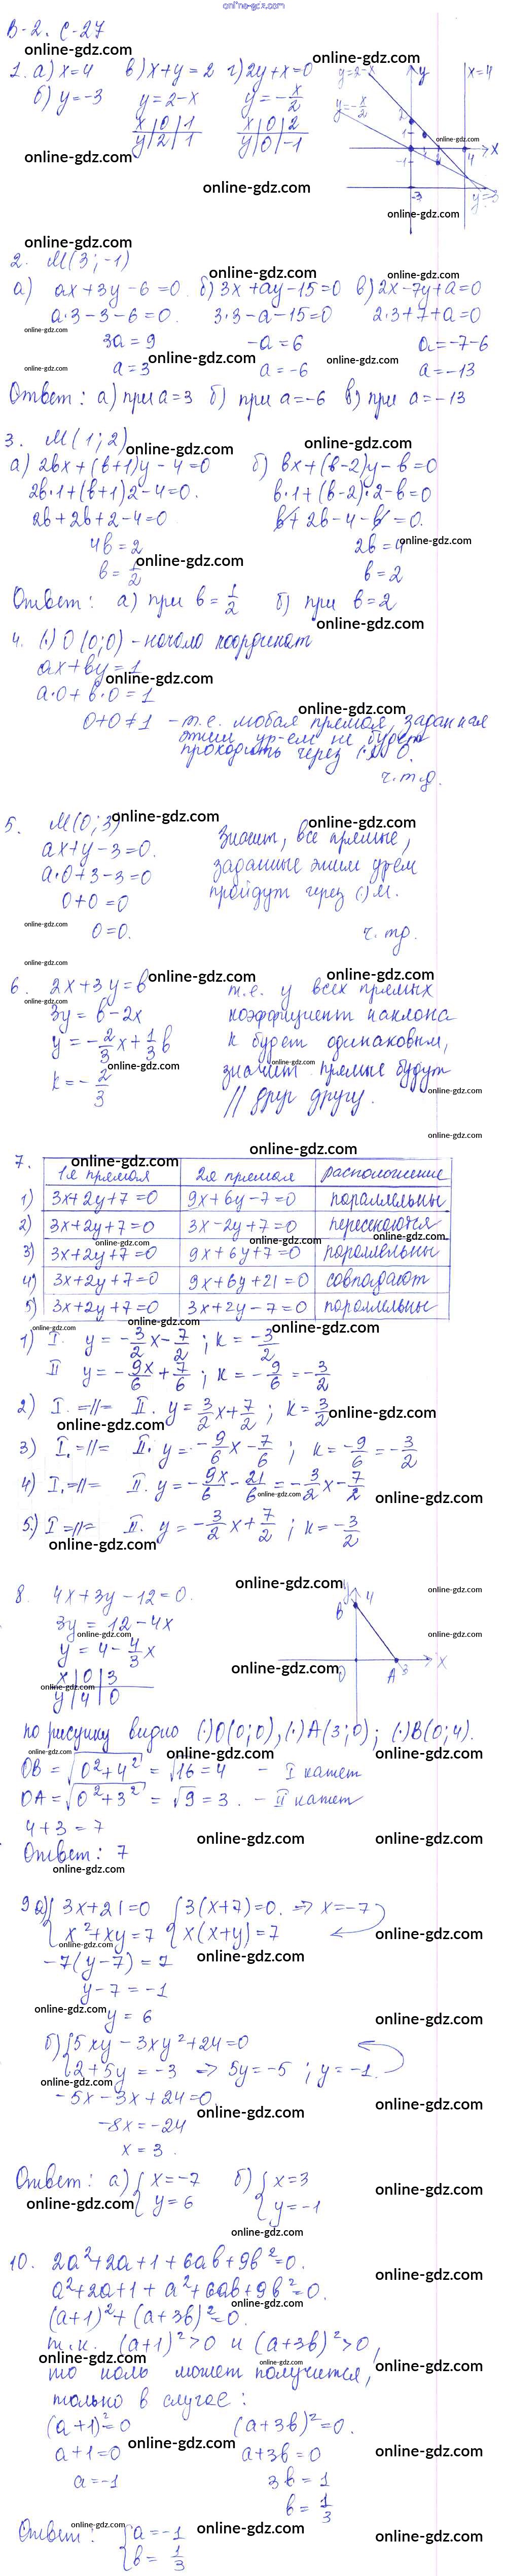 online-gdz.com
В-2. С-27
1. а) x=4 в) x+y=2 г) 2y+x=0
б) y=-3 y=2-x y=-x/2
x | 0 | 1 x | 0 | 2
y | 2 | 1 y | 0 | -1
y=2-x y x=4
y=-x/2
2
1
x
-1
4
-3
y=3
2. M(3;-1)
а) ax+3y-6=0 б) 3x+ay-15=0 в) 2x-7y+a=0
a·3-3-6=0. 3·3-a-15=0 2·3+7+a=0
3a=9 -a=6 a=-7-6
a=3 a=-6 a=-13
Ответ: а) при a=3 б) при a=-6 в) при a=-13
3. M(1;2)
а) 2bx+(b+1)y-4=0 б) bx+(b-2)y-b=0
2b·1+(b+1)2-4=0. b·1+(b-2)·2-b=0
2b+2b+2-4=0 b+2b-4-b=0.
4b=2 2b=4
b=1/2 b=2
Ответ: а) при b=1/2 б) при b=2
4. (·) O (0;0) - начало координат
ax+by=1
a·0+b·0=1
0+0≠1 - т.е. любая прямая, заданная
этим ур-ем не будет
проходить через (·) O.
ч.т.д.
5. M(0;3) Значит, все прямые,
ax+y-3=0. заданные этим ур-ем
a·0+3-3=0 пройдут через (·) M.
0+0=0
0=0. ч.тд.
6. 2x+3y=b т.е. у всех прямых
3y=b-2x коэффициент наклона
y=-2/3x+1/3b k будет одинаковым,
k=-2/3 значит прямые будут
// друг другу.
7. 1я прямая | 2я прямая | расположение
1) 3x+2y+7=0 | 9x+6y-7=0 | параллельны
2) 3x+2y+7=0 | 3x-2y+7=0 | пересекаются
3) 3x+2y+7=0 | 9x+6y+7=0 | параллельны
4) 3x+2y+7=0 | 9x+6y+21=0 | совпадают
5) 3x+2y+7=0 | 3x+2y-7=0 | параллельны
1) I. y=-3/2x-7/2; k=-3/2
II y=-9x/6+7/6; k=-9/6=-3/2
2) I. =//= II. y=3/2x+7/2; k=3/2
3) I. =//= II. y=-9/6x-7/6; k=-9/6=-3/2
4) I. =//= II. y=-9x/6-21/6=-3/2x-7/2
5.) I =//= II. y=-3/2x+7/2; k=-3/2
8. 4x+3y-12=0. y
3y=12-4x B 4
y=4-4/3x
x | 0 | 3 0 A 3 x
y | 4 | 0
по рисунку видно (·)O(0;0), (·)A(3;0); (·)B(0;4).
OB=√0²+4²=√16=4 - I катет
OA=√0²+3²=√9=3. - II катет
4+3=7
Ответ: 7
9 а) { 3x+21=0 { 3(x+7)=0. ⇒ x=-7
x²+xy=7 x(x+y)=7
-7(y-7)=7
y-7=-1
y=6
б) { 5xy-3xy²+24=0
2+5y=-3 ⇒ 5y=-5; y=-1.
-5x-3x+24=0
-8x=-24
x=3.
Ответ: а) { x=-7 б) { x=3
y=6 y=-1
10. 2a²+2a+1+6ab+9b²=0.
a²+2a+1+a²+6ab+9b²=0.
(a+1)²+(a+3b)²=0.
т.к. (a+1)²>0 и (a+3b)²>0,
то ноль может получится,
только в случае:
(a+1)²=0 (a+3b)²=0.
a+1=0 a+3b=0
a=-1 3b=1
b=1/3
Ответ: { a=-1
b=1/3